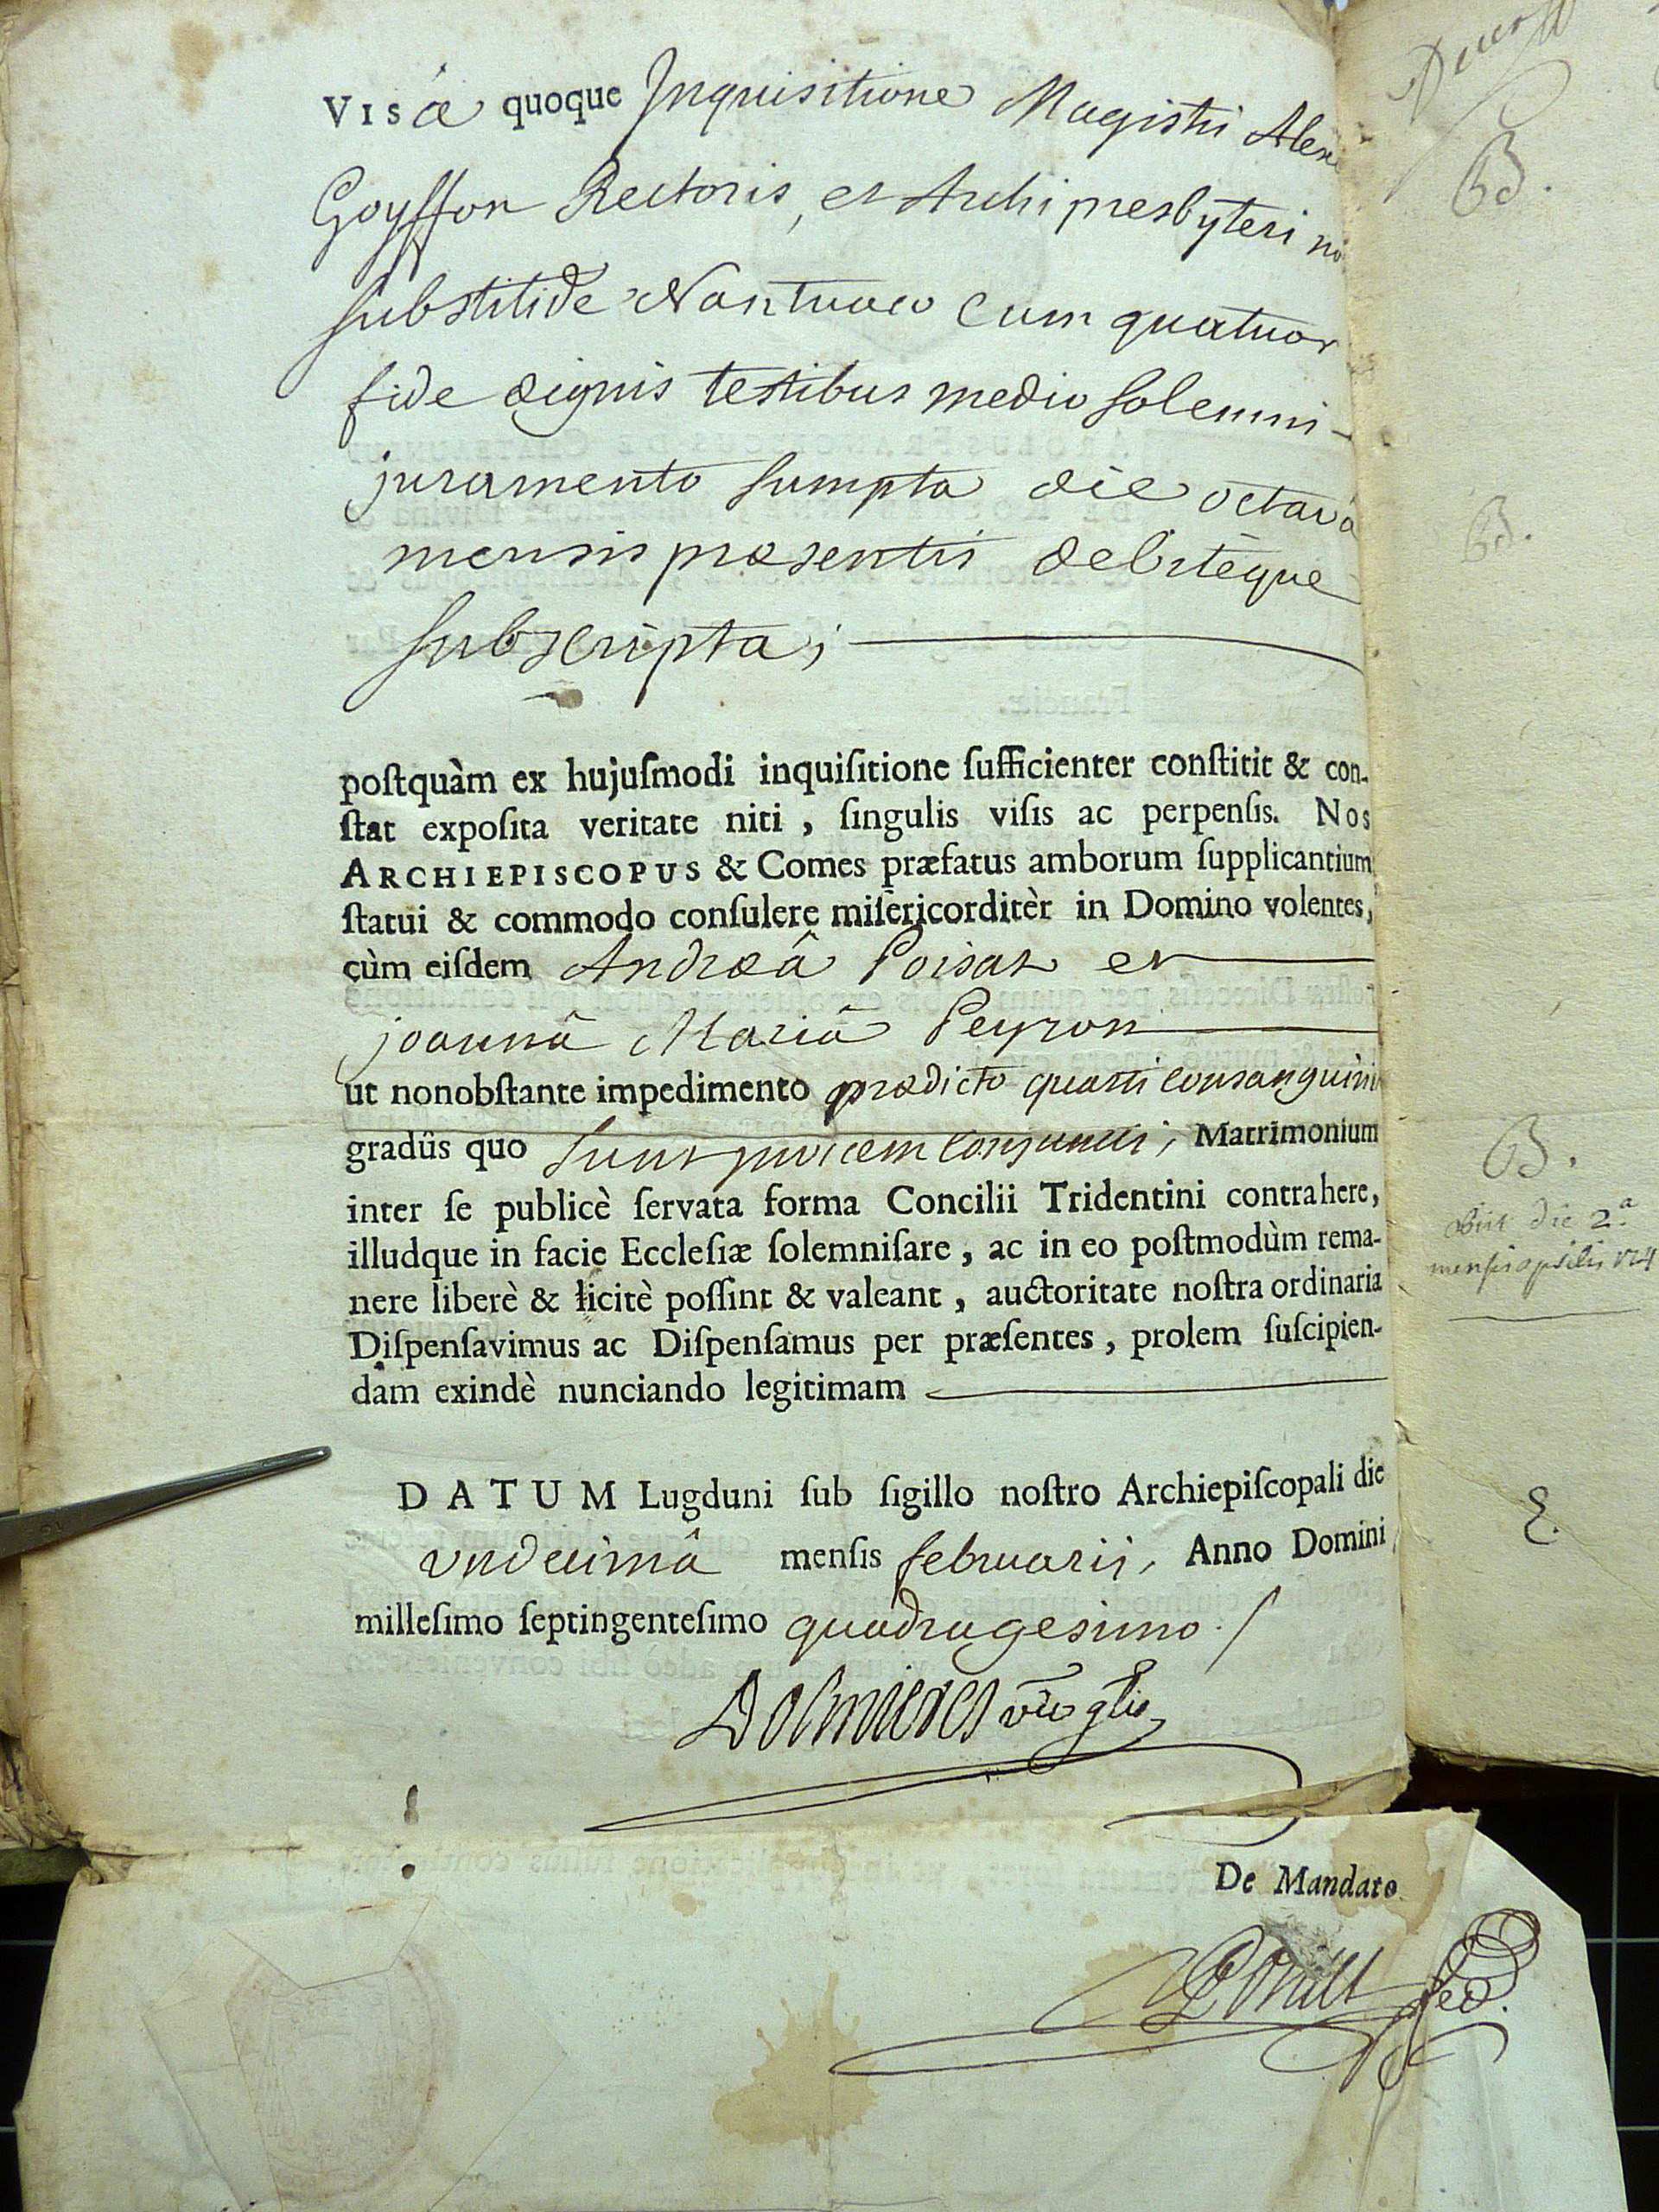 VISâ quoque Inquisitione Magistri
Goyffon Rectoris, et Archipresbyteri
substit. de Nantuaco cum quatuor
fide dignis testibus medio solemni
juramento sumpta die octavâ
mensis præsentis debitèque
subscripta;
poſtquàm ex hujuſmodi inquiſitione ſufficienter conſtitit & con-
ſtat expoſita veritate niti, ſingulis viſis ac perpenſis. NOS
ARCHIEPISCOPUS & Comes præfatus amborum ſupplicantium
ſtatui & commodo conſulere miſericorditèr in Domino volentes,
cùm eiſdem Andræâ Poisat et
joannâ Mariâ Peyron
ut nonobſtante impedimento prædicto quarti consanguini
gradûs quo sunt invicem conjuncti, Matrimonium
inter ſe publicè ſervata forma Concilii Tridentini contrahere,
illudque in facie Eccleſiæ ſolemniſare, ac in eo poſtmodùm rema-
nere liberè & licitè poſſint & valeant, auctoritate noſtra ordinaria
Diſpenſavimus ac Diſpenſamus per præſentes, prolem ſuſcipien-
dam exindè nunciando legitimam
DATUM Lugduni ſub ſigillo noſtro Archiepiſcopali die
undecimâ menſis februarii, Anno Domini
milleſimo ſeptingenteſimo quadragesimo./
De Mandato
B.
B.
B.
obiit die 2.ª
mensis aprilis
E.